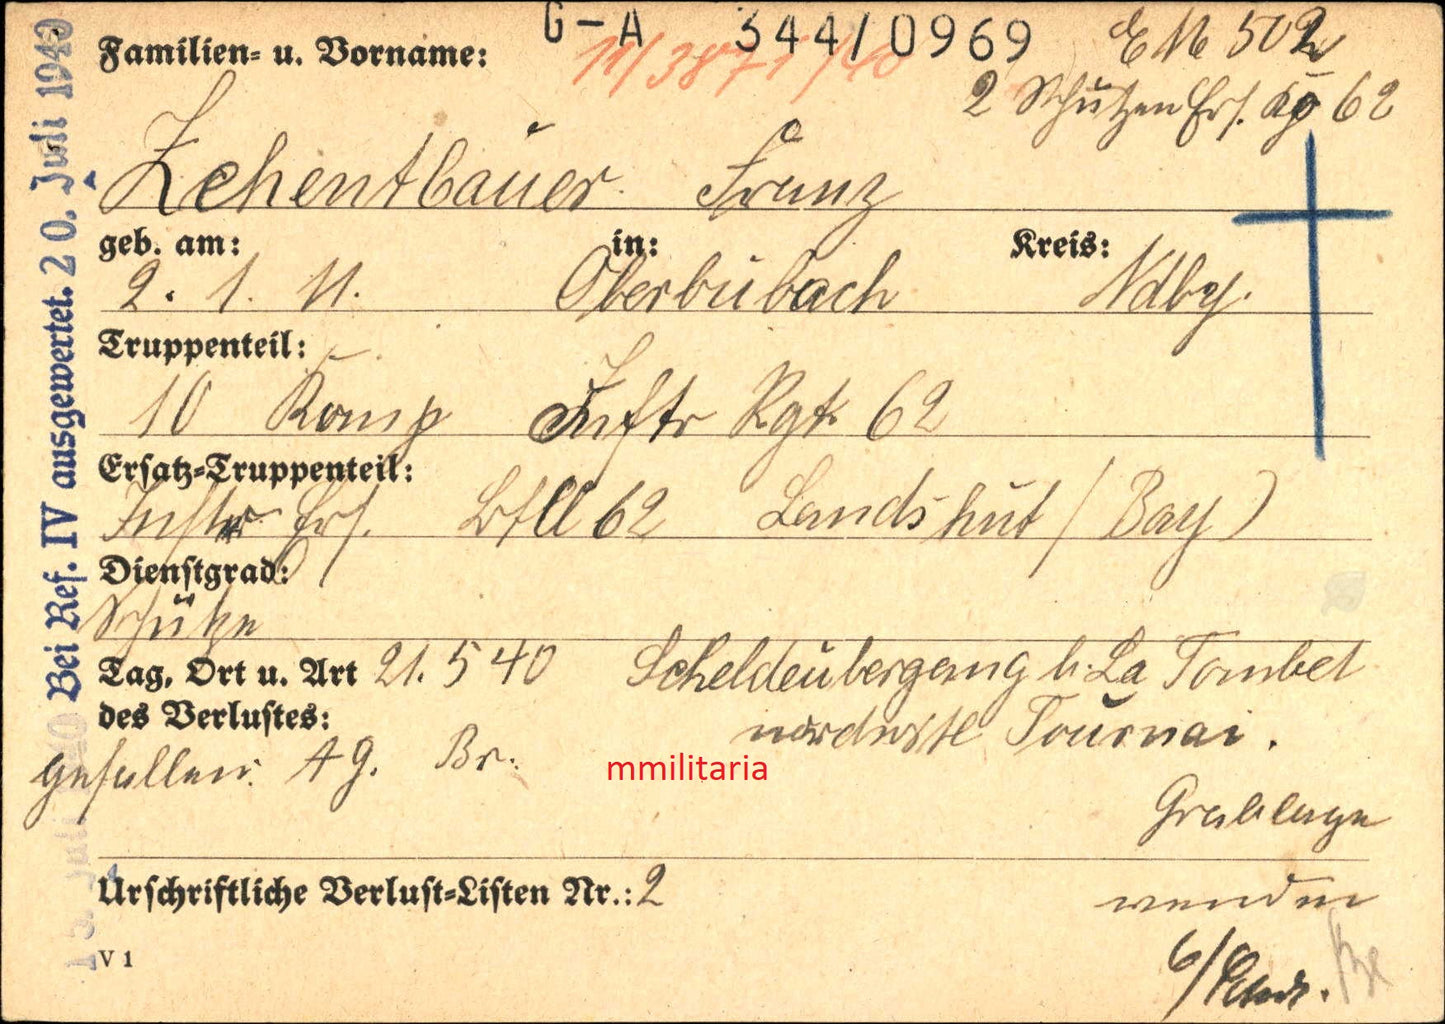 G-A 344/0969
11/3871/40
EM 502
2 Schützen Ers. Kp 62
Familien- u. Vorname:
Zehentbauer Franz
geb. am: in: Kreis:
2. 1. 11. Oberbubach Ndby.
Truppenteil:
10 Komp Inftr Rgt 62
Ersatz-Truppenteil:
Inftr Ers. Btll 62 Landshut (Bay)
Dienstgrad:
Schütze
Tag, Ort u. Art 21. 5 40 Scheldeübergang b. La Tombel
des Verlustes: nordwstl Tournai.
gefallen. AG. Br.
mmilitaria
Grablage
Urschriftliche Verlust-Listen Nr.: 2
wenden
V 1
Bei Ref. IV ausgewertet. 20. Juli 1940